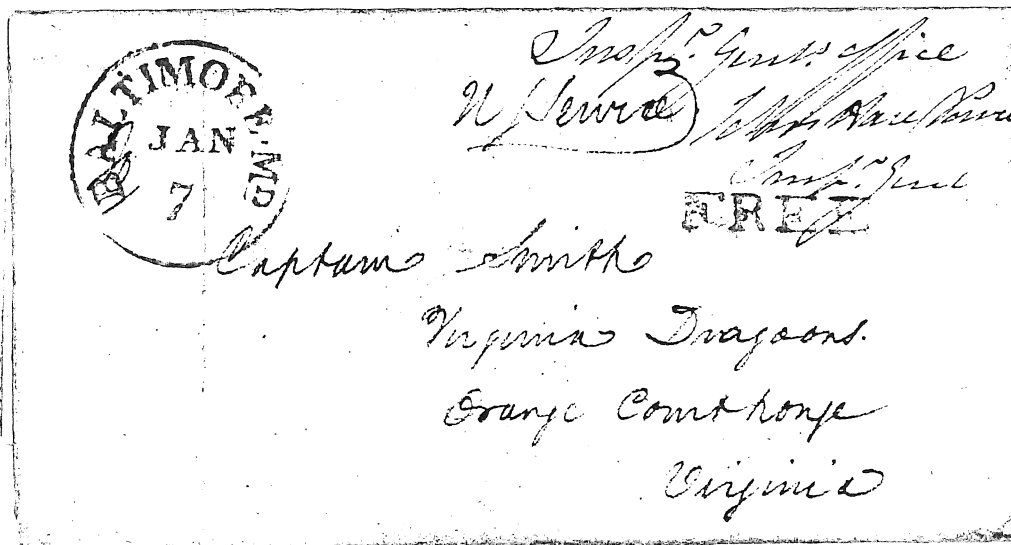 BALTIMORE. MD
JAN
7
Inspr. Genls. Office
U Service
Inspr. Genl
FREE
Captain Smith
Virginia Dragoons.
Orange Courthouse
Virginia